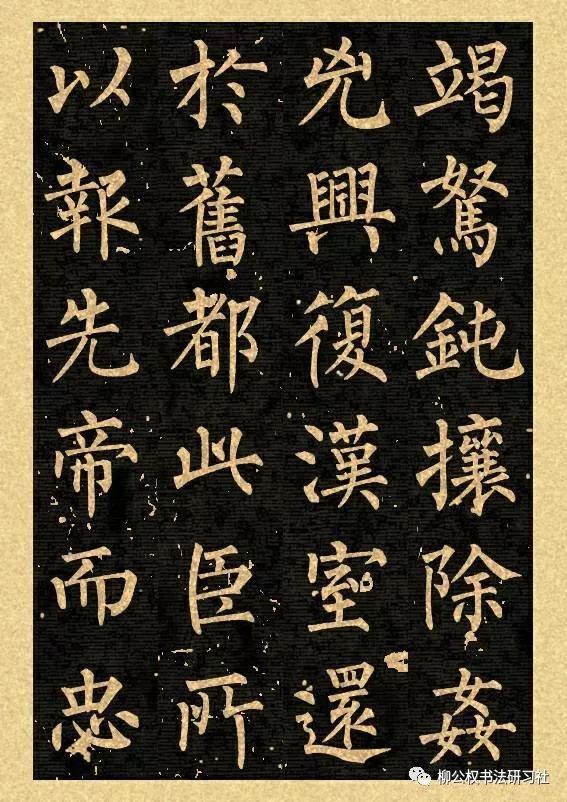 竭駑鈍攘除姦
兇興復漢室還
於舊都此臣所
以報先帝而忠
柳公权书法研习社